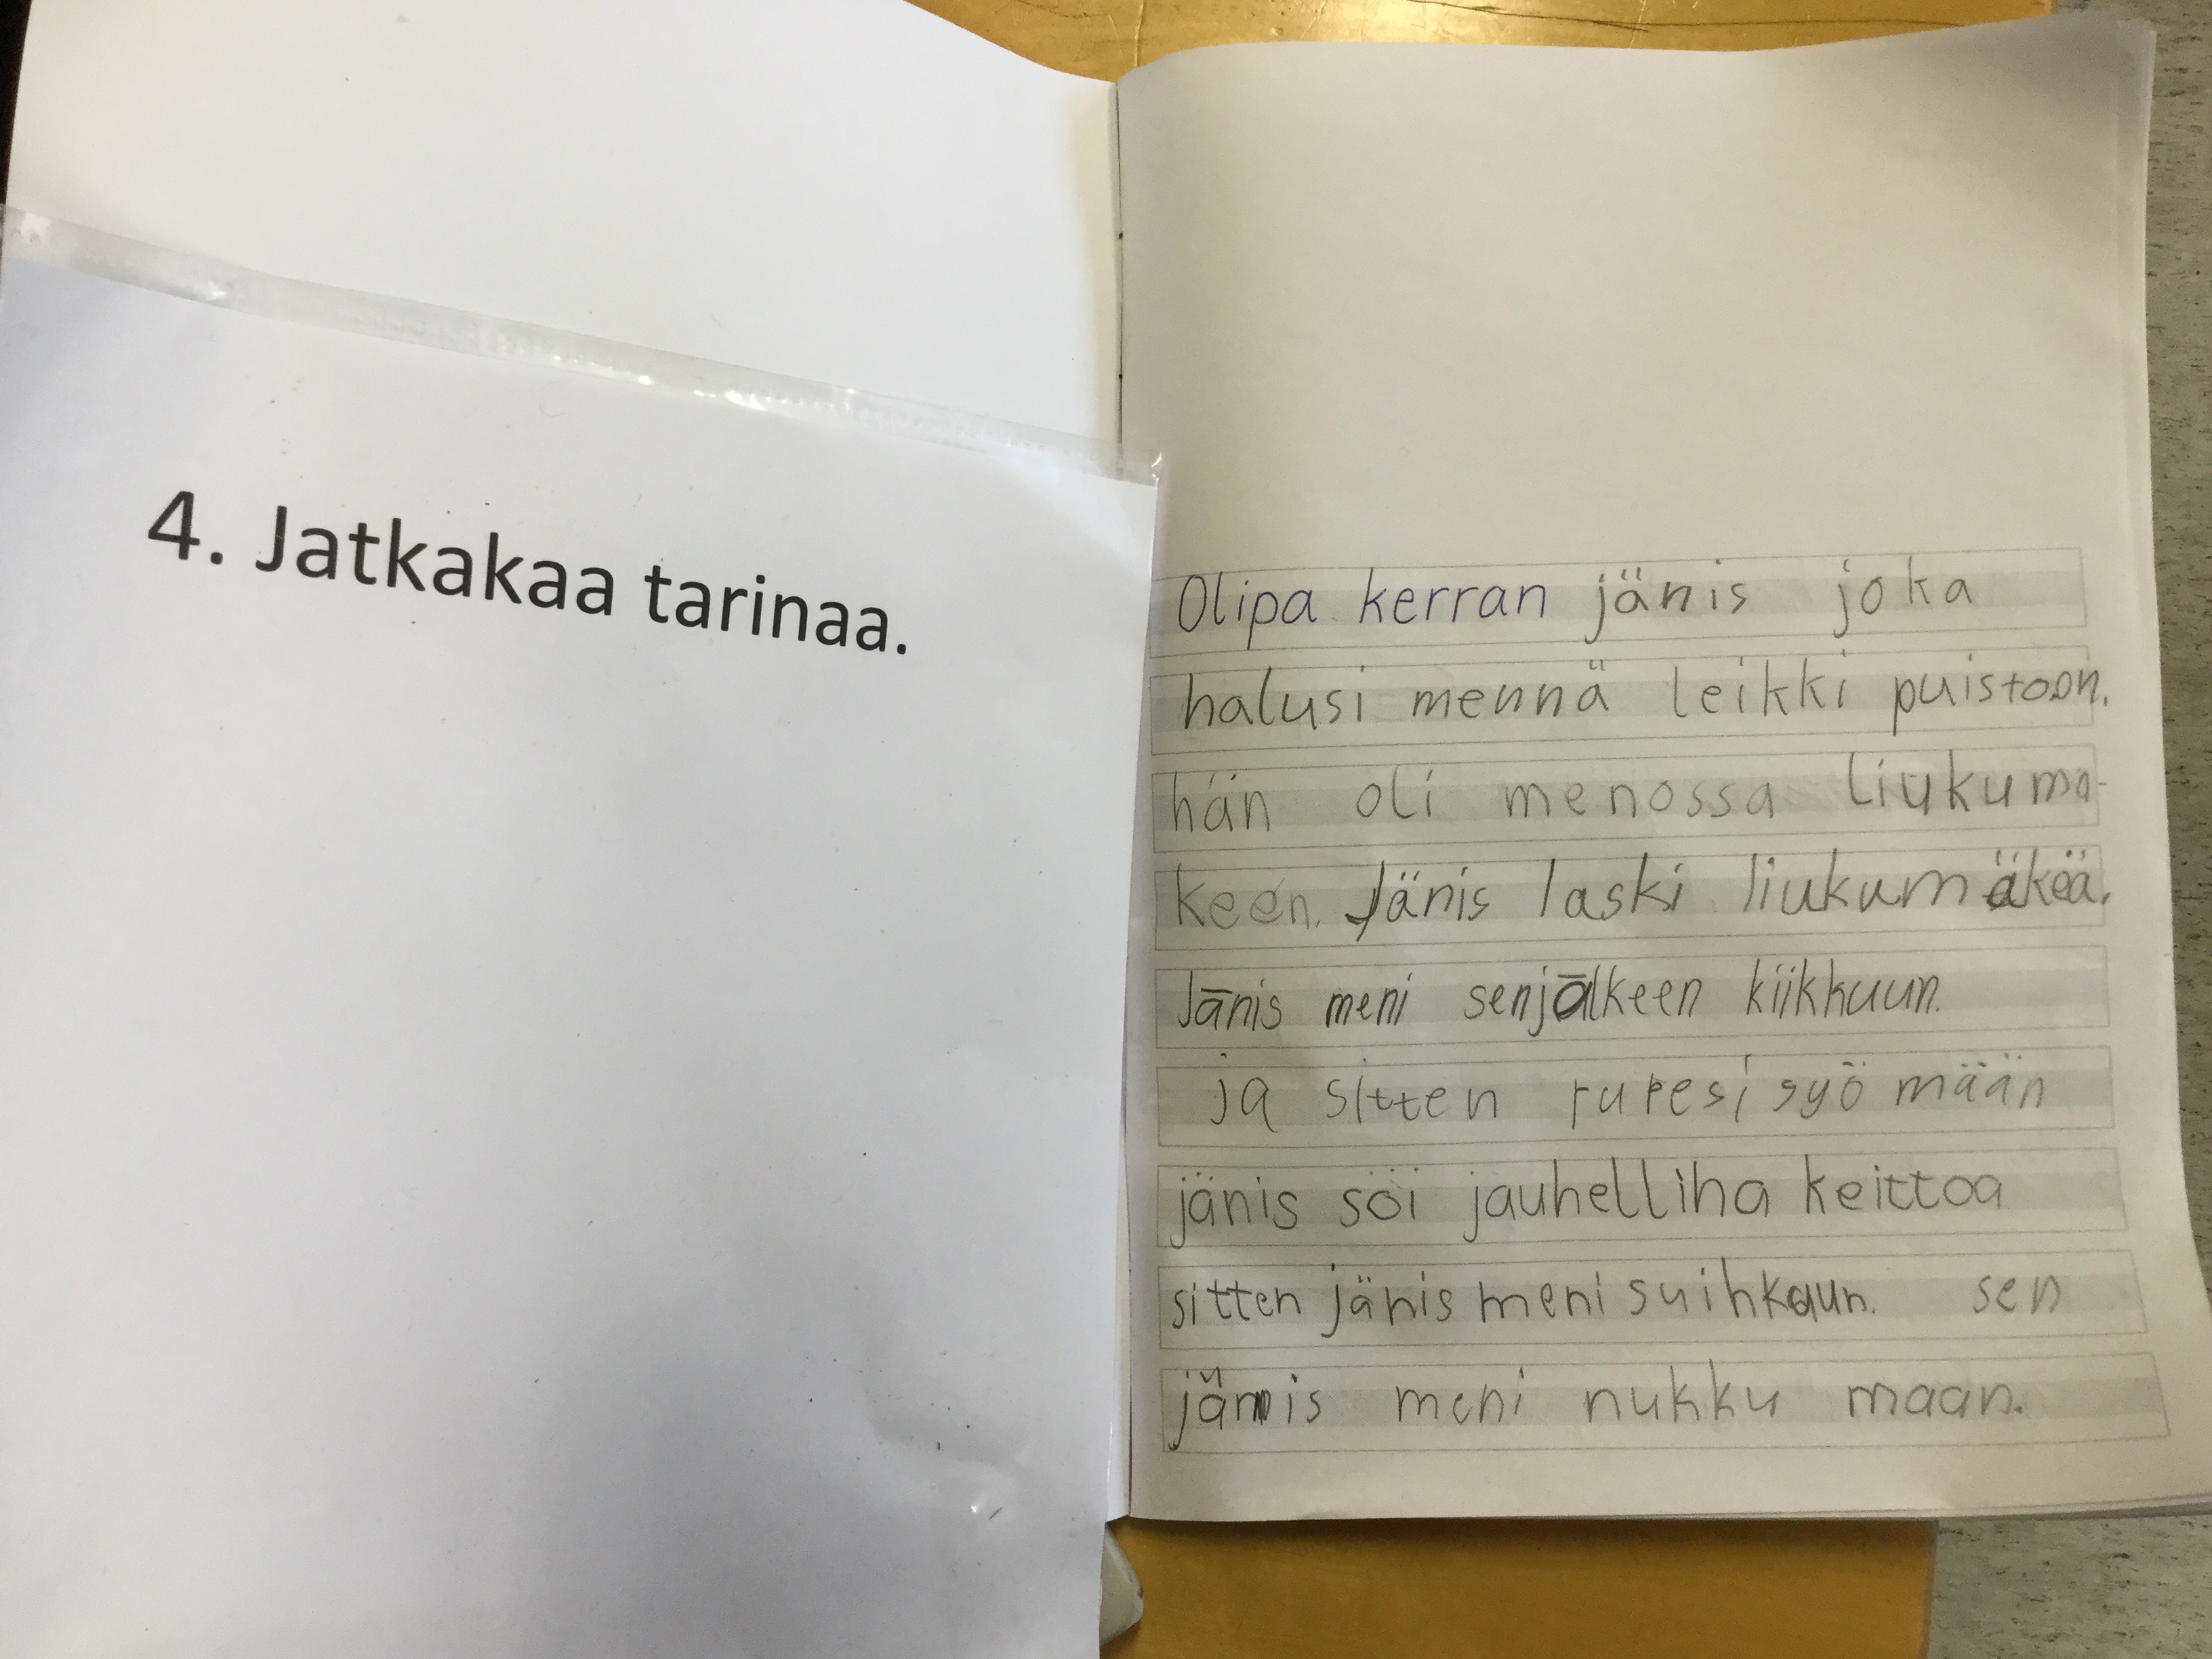 4. Jatkakaa tarinaa.
Olipa kerran jänis joka
halusi mennä leikki puistoon.
hän oli menossa liukuma-
keen. Jänis laski liukumäkeä.
Jänis meni senjälkeen kiikkuun.
ja sitten rupesi syömään
jänis söi jauhelliha keittoa
sitten jänis meni suihkuun. sen
jänis meni nukku maan.